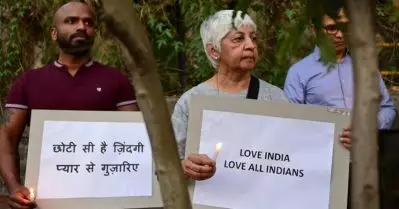 छोटी सी है ज़िंदगी
प्यार से गुज़ारिए
LOVE INDIA
LOVE ALL INDIANS